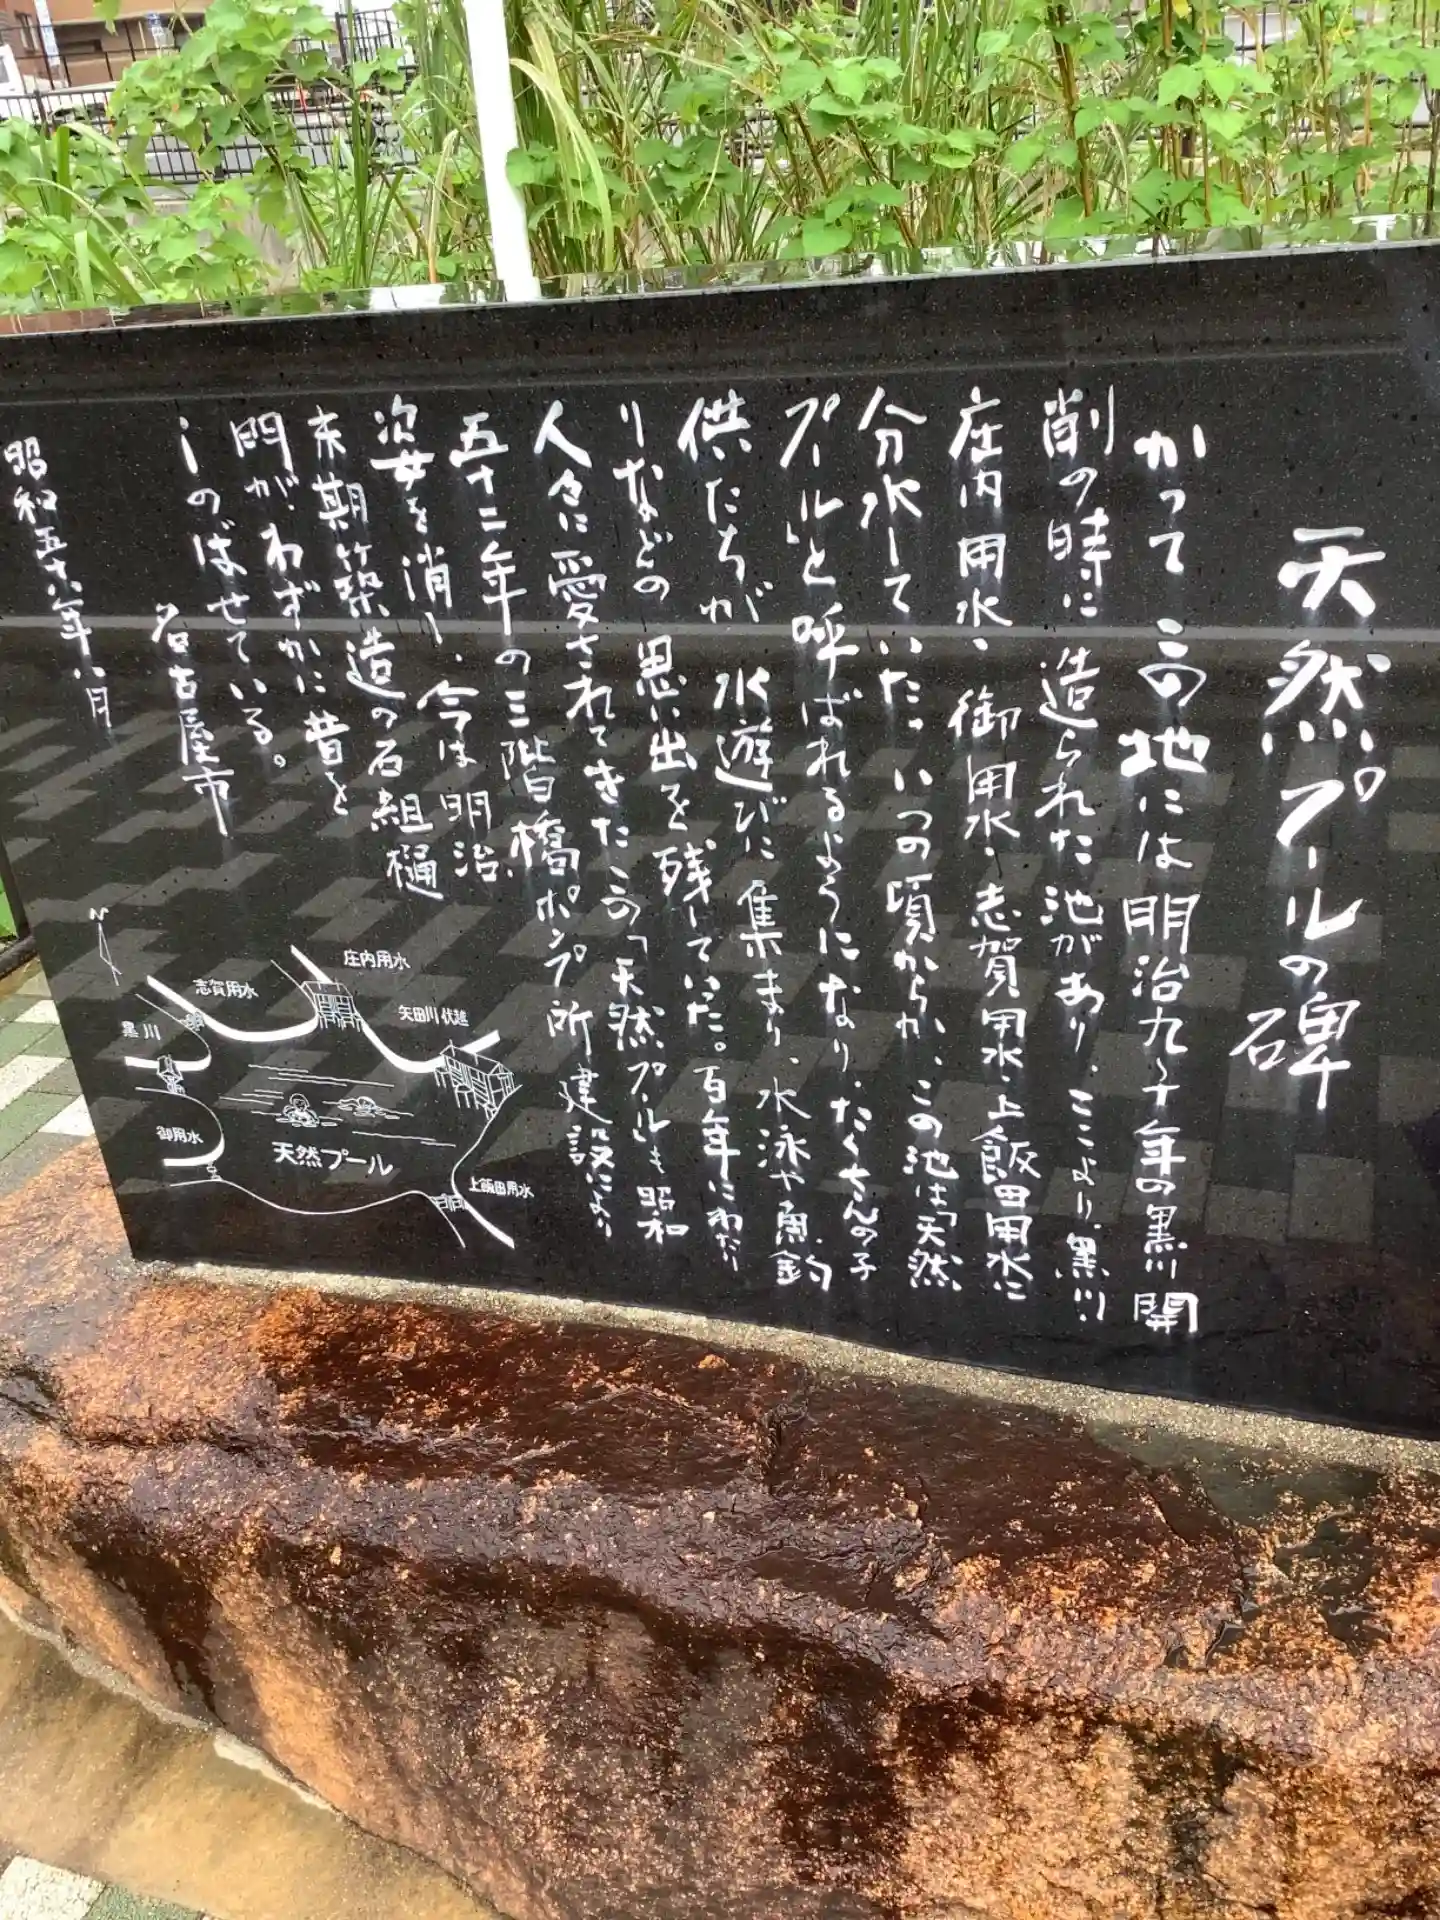 天然プールの碑
かつてこの地には明治九〜十年の黒川開
削の時に造られた池があり、ここより黒川、
庄内用水、御用水、志賀用水、上飯田用水に
分水していた。いつの頃からか、この池は「天然
プール」と呼ばれるようになり、たくさんの子
供たちが水遊びに集まり、水泳や魚釣
りなどの思い出を残していた。百年にわたり
人々に愛されてきたこの「天然プール」も昭和
五十二年の三階橋ポンプ所建設により
姿を消し、今は明治
末期築造の石組樋
門がわずかに昔を
しのばせている。
名古屋市
昭和五十六年八月
N
庄内用水
志賀用水
矢田川伏越
黒川
御用水
天然プール
上飯田用水